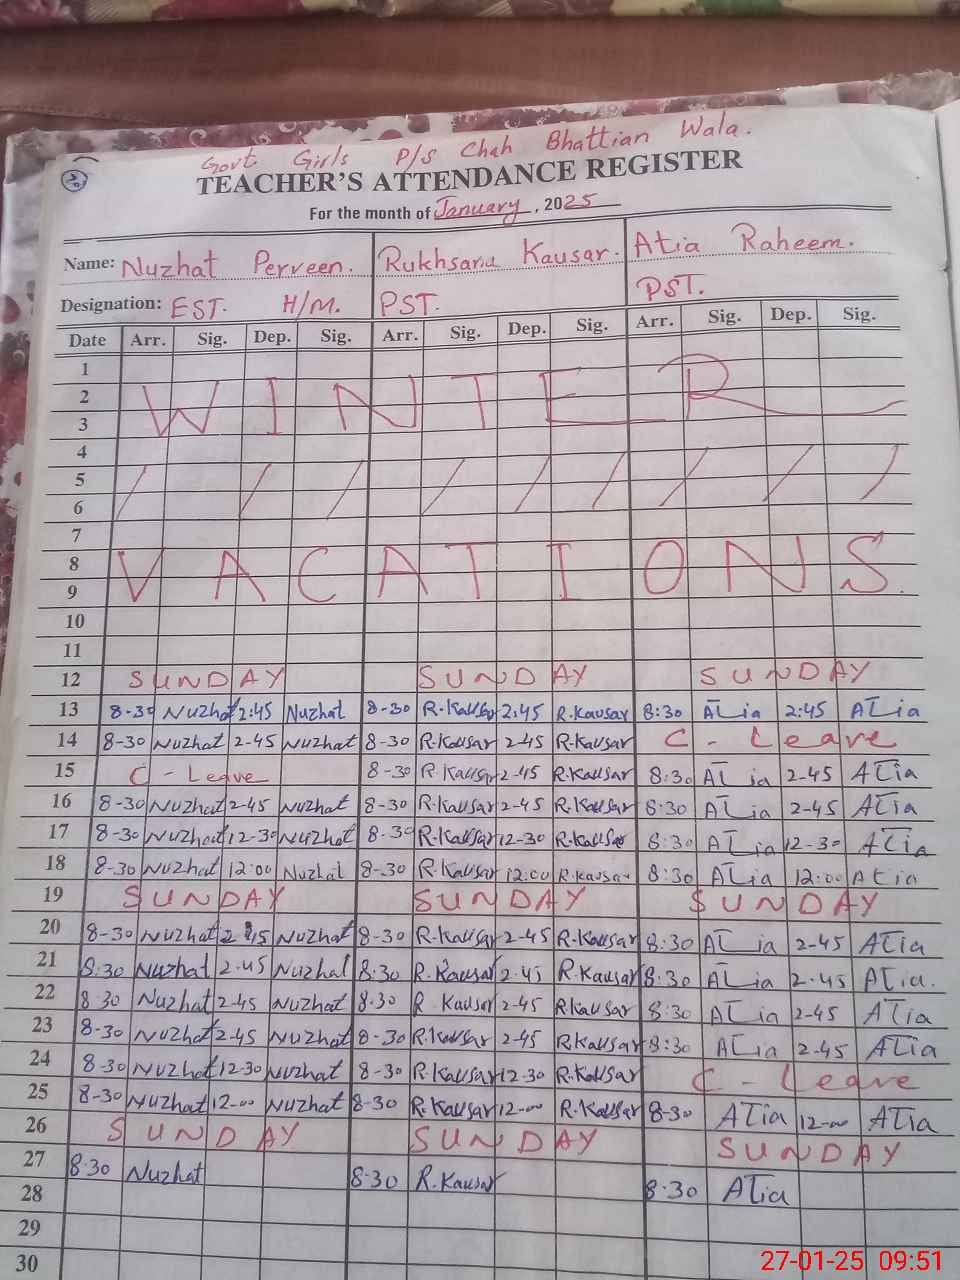 Govt Girls P/S Chah Bhattian Wala.
TEACHER'S ATTENDANCE REGISTER
For the month of January, 2025
Name: Nuzhat Perveen. Rukhsana Kausar. Atia Raheem.
Designation: EST. H/M. PST. PST.
Date Arr. Sig. Dep. Sig. Arr. Sig. Dep. Sig. Arr. Sig. Dep. Sig.
1
2 WINTER
3
4
5 / / / / / / / / /
6
7
8 VACATIONS.
9
10
11
12 SUNDAY SUNDAY SUNDAY
13 8-30 Nuzhat 2:45 Nuzhat 8-30 R.Kausar 2:45 R.Kausar 8:30 ATia 2:45 ATia
14 8-30 Nuzhat 2-45 Nuzhat 8-30 R.Kausar 2-45 R.Kausar C - Leave
15 C - Leave 8-30 R.Kausar 2-45 R.Kausar 8:30 ATia 2-45 ATia
16 8-30 Nuzhat 2-45 Nuzhat 8-30 R.Kausar 2-45 R.Kausar 8:30 ATia 2-45 ATia
17 8-30 Nuzhat 12-30 Nuzhat 8-30 R.Kausar 12-30 R.Kausar 8:30 ATia 12-30 ATia
18 8-30 Nuzhat 12:00 Nuzhat 8-30 R.Kausar 12:00 R.Kausar 8:30 ATia 12:00 Atia
19 SUNDAY SUNDAY SUNDAY
20 8-30 Nuzhat 2-45 Nuzhat 8-30 R.Kausar 2-45 R.Kausar 8:30 ATia 2-45 ATia
21 8:30 Nuzhat 2:45 Nuzhat 8:30 R.Kausar 2:45 R.Kausar 8:30 ATia 2-45 ATia.
22 8:30 Nuzhat 2-45 Nuzhat 8:30 R.Kausar 2-45 R.Kausar 8:30 ATia 2-45 ATia
23 8-30 Nuzhat 2-45 Nuzhat 8-30 R.Kausar 2-45 R.Kausar 8:30 ATia 2-45 ATia
24 8-30 Nuzhat 12-30 Nuzhat 8-30 R.Kausar 12-30 R.Kausar C - Leave
25 8-30 Nuzhat 12-00 Nuzhat 8-30 R.Kausar 12-00 R.Kausar 8-30 ATia 12-00 ATia
26 SUNDAY SUNDAY SUNDAY
27 8:30 Nuzhat 8:30 R.Kausar 8:30 ATia
28
29
30
27-01-25 09:51